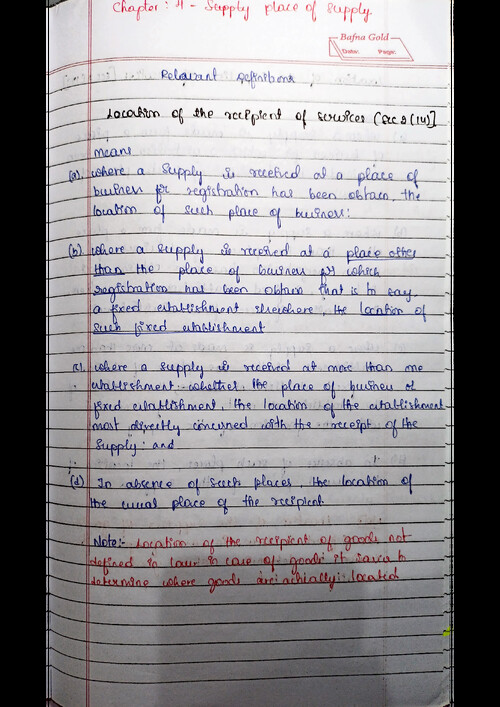 Chapter : 4 - Supply place of supply
Bafna Gold
Date: Page:
Relavant Definitions
Location of the recipient of services (Sec 2 (14)]
means
(a). where a supply is received at a place of
business for registration has been obtain, the
location of such place of business:
(b). where a supply is received at a place other
than the place of business for which
registration has been obtain that is to say
a fixed establishment elsewhere, the location of
such fixed establishment
(c). where a supply is received at more than one
establishment whether the place of business or
fixed establishment, the location of the establishment
most directly concerned with the receipt of the
supply: and
(d) In absence of such places, the location of
the usual place of the recipient.
Note:- Location of the recipient of goods not
defined in law in case of goods it
determine where goods are actually located